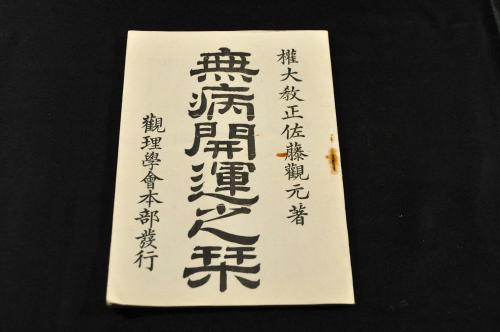 權大教正佐藤觀元著
無病開運之栞
觀理學會本部發行